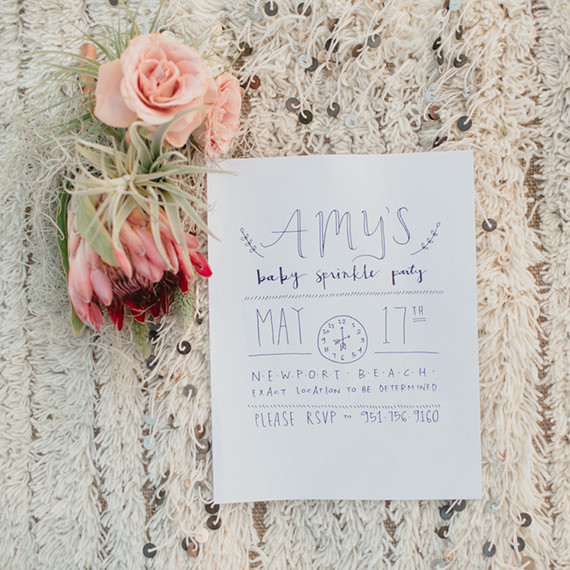 AMY'S
baby sprinkle party
MAY 17TH
NEWPORT · BEACH ·
EXACT LOCATION TO BE DETERMINED
PLEASE RSVP to 951·756·9160